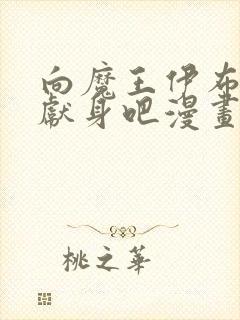 向魔王伊布
獻身吧漫畫
桃之華